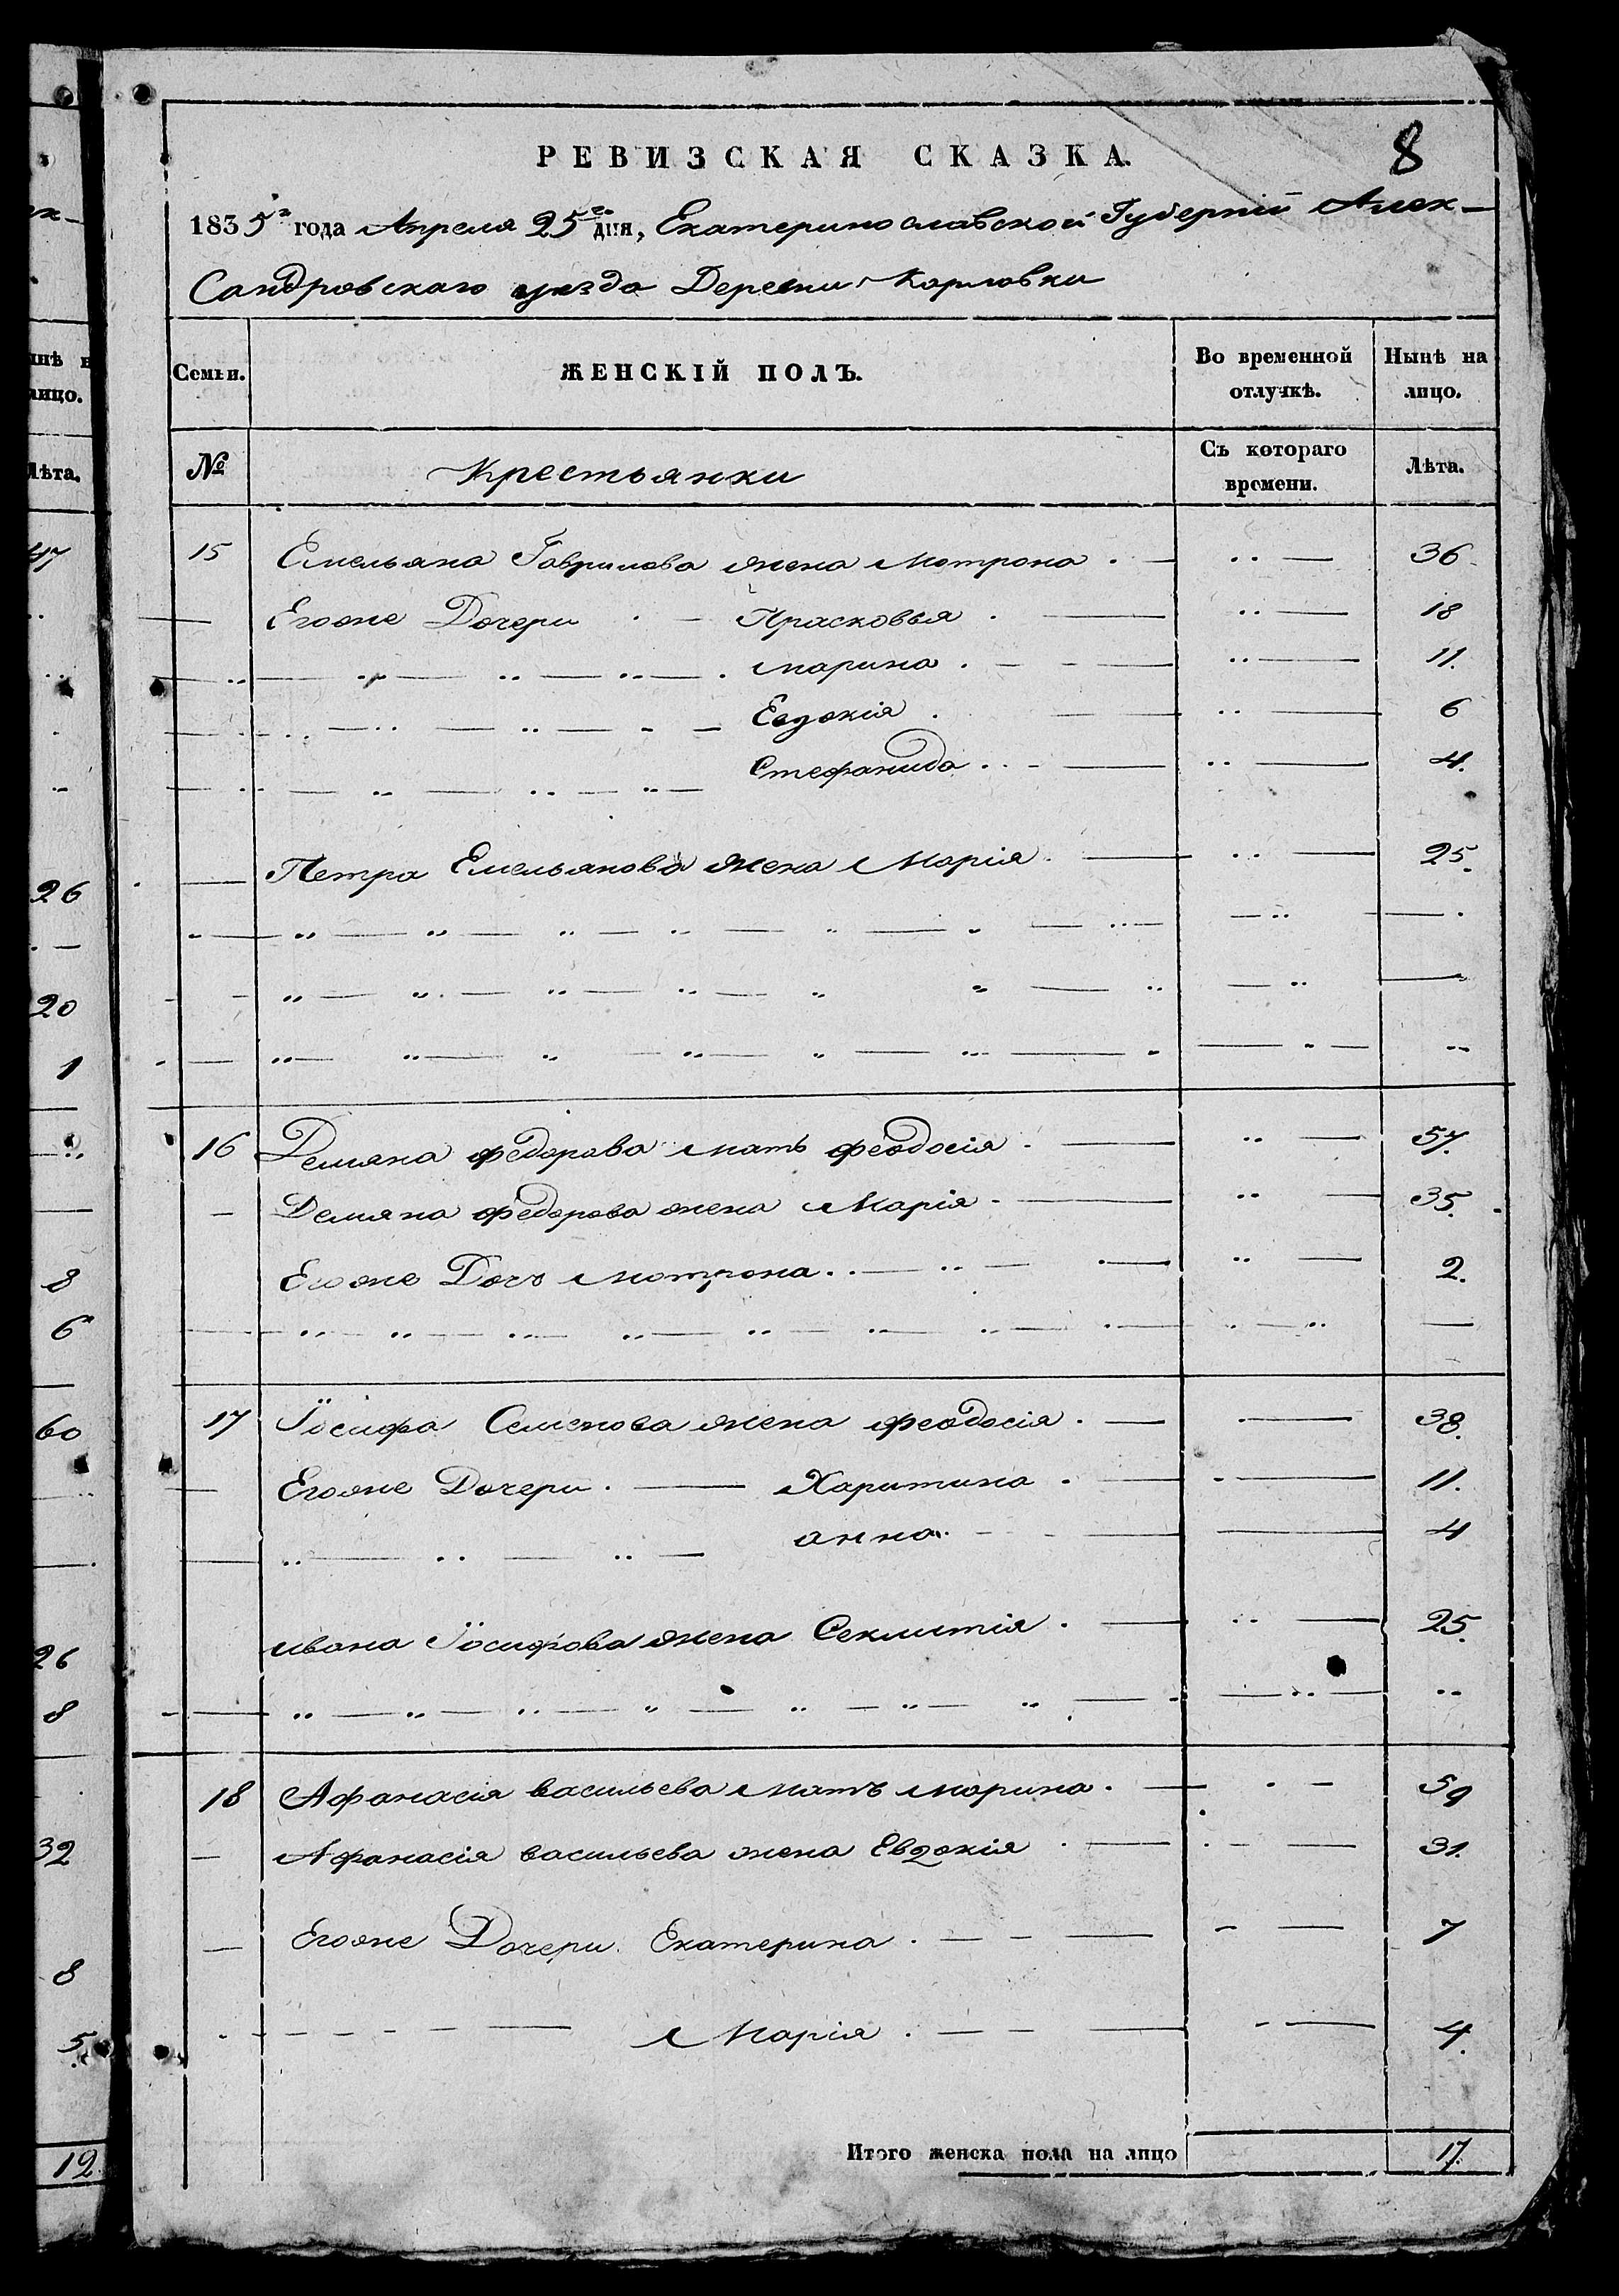 8
РЕВИЗСКАЯ СКАЗКА.
1835го года Апреля 25го дня, Екатеринославской Губернiи Алек-
Сандровскаго уезда Деревни Карловки
Семьи.
ЖЕНСКIЙ ПОЛЪ.
Во временной отлучкѣ.
Нынѣ на лицо.
№
Крестьянки
Съ котораго времени.
Лѣта.
15 Емельяна Гаврилова жена Мотрона 36
Егоже Дочери Прасковья 18
марина 11.
Евдокiя 6
Стефанида 4.
Петра Емельянова жена Марiя 25.
16 Демяна федорова мать феодосiя 57.
Демяна федорова жена Марiя 35.
Егоже Дочь мотрона 2.
17 Iосифа Семенова жена феодосiя 38.
Егоже Дочери Харитина 11.
анна 4
ивана Iосифова жена Секлитiя 25.
18 Афанасiя васильева мать марина 59
Афанасiя васильева жена Евдокiя 31.
Егоже Дочери Екатерина 7
Марiя 4.
Итого женска пола на лицо 17
лицо.
Лѣта.
47
26
20
1
8
6
60
26
8
32
8
5
12